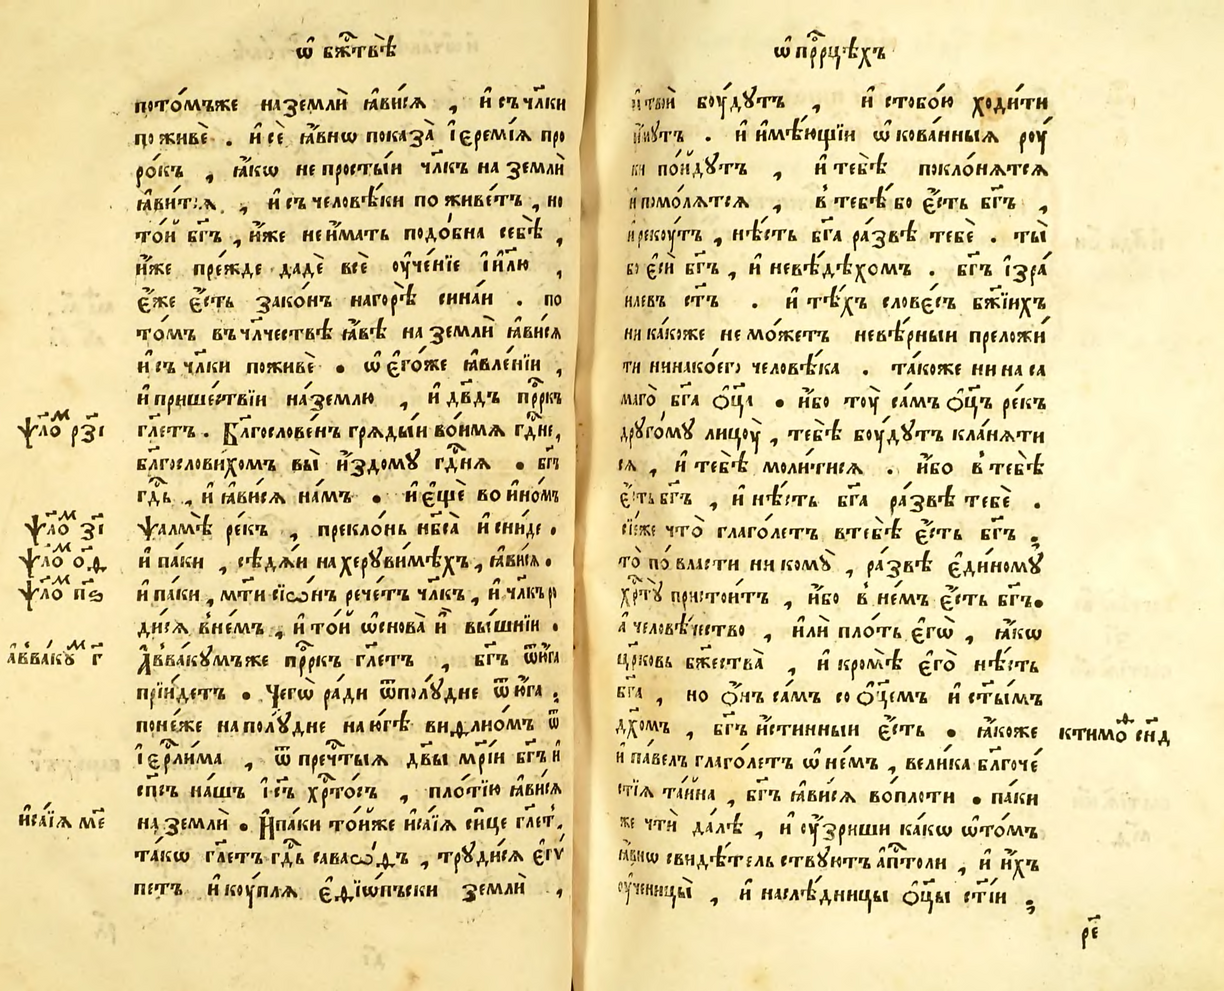 ѿ бж҃твѣ
пото́мъже на землѝ ꙗ҆ви́сѧ , и҆ съ чл҃ки
поживѐ . и҆ сѐ ꙗ҆́внѡ показа̀ і҆еремі́ѧ про
ро́къ , ꙗ҆́кѡ не просты́и чл҃къ на землѝ
ꙗ҆ви́тсѧ , и҆ съ человѣ́ки поживе́тъ , но
то́й бг҃ъ , и҆́же не и҆́мать подо́бна себѣ̀ ,
и҆́же пре́жде дадѐ всѐ оу҆че́нїе і҆и҃лю ,
є҆́же є҆́сть зако́нъ на горѣ̀ сина́и . по
то́мъ въ чл҃чествѣ ꙗ҆́вѣ на землѝ ꙗ҆ви́сѧ
и҆ съ чл҃ки поживѐ . ѡ҆ є҆го́же ꙗ҆вле́нїи ,
и҆ прише́ствїи на́ землю , и҆ дв҃дъ прⷪ҇ркъ
ѱало́м рз҃і
гл҃етъ . Бл҃гослове́нъ грѧды́и во и҆́мѧ гдⷭ҇не ,
бл҃гослови́хомъ вы̀ и҆з до́му гдⷭ҇нѧ . бг҃ъ
гдⷭ҇ь , и҆ ꙗ҆ви́сѧ на́мъ . и҆ є҆щѐ во и҆но́мъ
ѱало́м з҃і
ѱалмѣ̀ ре́къ , преклонь нб҃са̀ и҆ сни́де .
ѱало́м о҃ѳ
и҆ па́ки , сѣдѧ́и на херꙋви́мѣхъ , ꙗ҆ви́сѧ .
ѱало́м п҃ѕ
и҆ па́ки , мт҃и сїѡ́нъ рече́тъ чл҃къ , и҆ чл҃къ р
ди́сѧ в не́мъ , и҆ то́й ѡ҆снова̀ и҆̀ вы́шнїи .
а҆вваку́м г҃
А҆ввакꙋ́мъже прⷪ҇ркъ гл҃етъ , бг҃ъ ѿ ю҆́га
прїи́детъ . Чегѡ̀ ра́ди ѿ полꙋ́дне ѿ ю҆́га ;
поне́же на полꙋ́дне на ю҆́гѣ виѳлио́мъ ѿ
і҆ерⷭ҇ли́ма , ѿ преч҃тыѧ дв҃ы мр҃і́и бг҃ъ и҆
сп҃съ на́шъ і҆с҃ъ хрⷭ҇то́съ , пло́тїю ꙗ҆ви́сѧ
и҆са́їѧ ме҃
на землѝ . И҆ па́ки то́йже и҆са́їѧ си́це гл҃етъ .
та́кѡ гл҃етъ гдⷭ҇ь саваѡ́ѳъ , трꙋди́сѧ є҆гѵ́
петъ и҆ коу́плѧ є҆ѳїѡ́пьски землѝ ,
ѿ прⷪ҇рцѣхъ
и҆ твои̑ боу́дꙋтъ , и҆ с тобо́ю ходи́ти
и҆́мꙋтъ . и҆ и҆мѣ́ющїи ѡ҆кова́нныѧ рꙋ́
ки по́йдꙋтъ , и҆ тебѣ̀ покло́нѧтсѧ
и҆ помо́лѧтсѧ , в тебѣ́ бо є҆́сть бг҃ъ ,
и҆ рекоу́тъ , нѣ́сть бг҃а ра́звѣ тебѐ . ты̀
бо є҆сѝ бг҃ъ , и҆ не вѣ́дѣхомъ . бг҃ъ і҆зра́
илевъ ст҃ъ . и҆ тѣ́хъ слове́съ бж҃їихъ
ни ка́коже не мо́жетъ невѣ́рныи преложи́
ти ни на кое́го человѣ́ка . та́коже ни на са
маго̀ бг҃а ѻ҆ц҃а . и҆́бо тоу̀ са́мъ ѻ҆ц҃ъ ре́къ
дрꙋго́мꙋ лицоу̀ , тебѣ̀ боу́дꙋтъ кла́нѧти
сѧ , и҆ тебѣ̀ моли́тисѧ . и҆́бо в тебѣ̀
є҆́сть бг҃ъ , и҆ нѣ́сть бг҃а ра́звѣ тебѐ .
сїе́же что̀ глаго́летъ в тебѣ̀ є҆́сть бг҃ъ .
то̀ по́ власти ни комꙋ̀ , ра́звѣ є҆ди́номꙋ
хрⷭ҇тꙋ̀ присто́итъ , и҆́бо в не́мъ є҆́сть бг҃ъ .
а҆ человѣ́чество , и҆лѝ пло́ть є҆гѡ̀ , ꙗ҆́кѡ
цр҃ковь бж҃ества̀ , и҆ кромѣ̀ є҆го̀ нѣ́сть
бг҃а , но ѻ҆́нъ са́мъ со ѻ҆ц҃емъ и҆ ст҃ы́мъ
дх҃омъ , бг҃ъ и҆́стинныи є҆́сть . ꙗ҆́коже
к тимоѳ сн҃д
и҆ па́велъ глаго́летъ ѡ҆ не́мъ , вели́ка бл҃гоче́
стїѧ та́ина , бг҃ъ ꙗ҆ви́сѧ во пло́ти . па́ки
же чтѝ да́лѣ , и҆ оу҆́зриши ка́кѡ ѡ҆ то́мъ
ꙗ҆́внѡ свидѣ́тельствꙋютъ а҆пⷭ҇толи , и҆ и҆́хъ
оу҆ченицы̀ , и҆ наслѣ́дницы ѻ҆ц҃ы ст҃і́и ;
ре҃